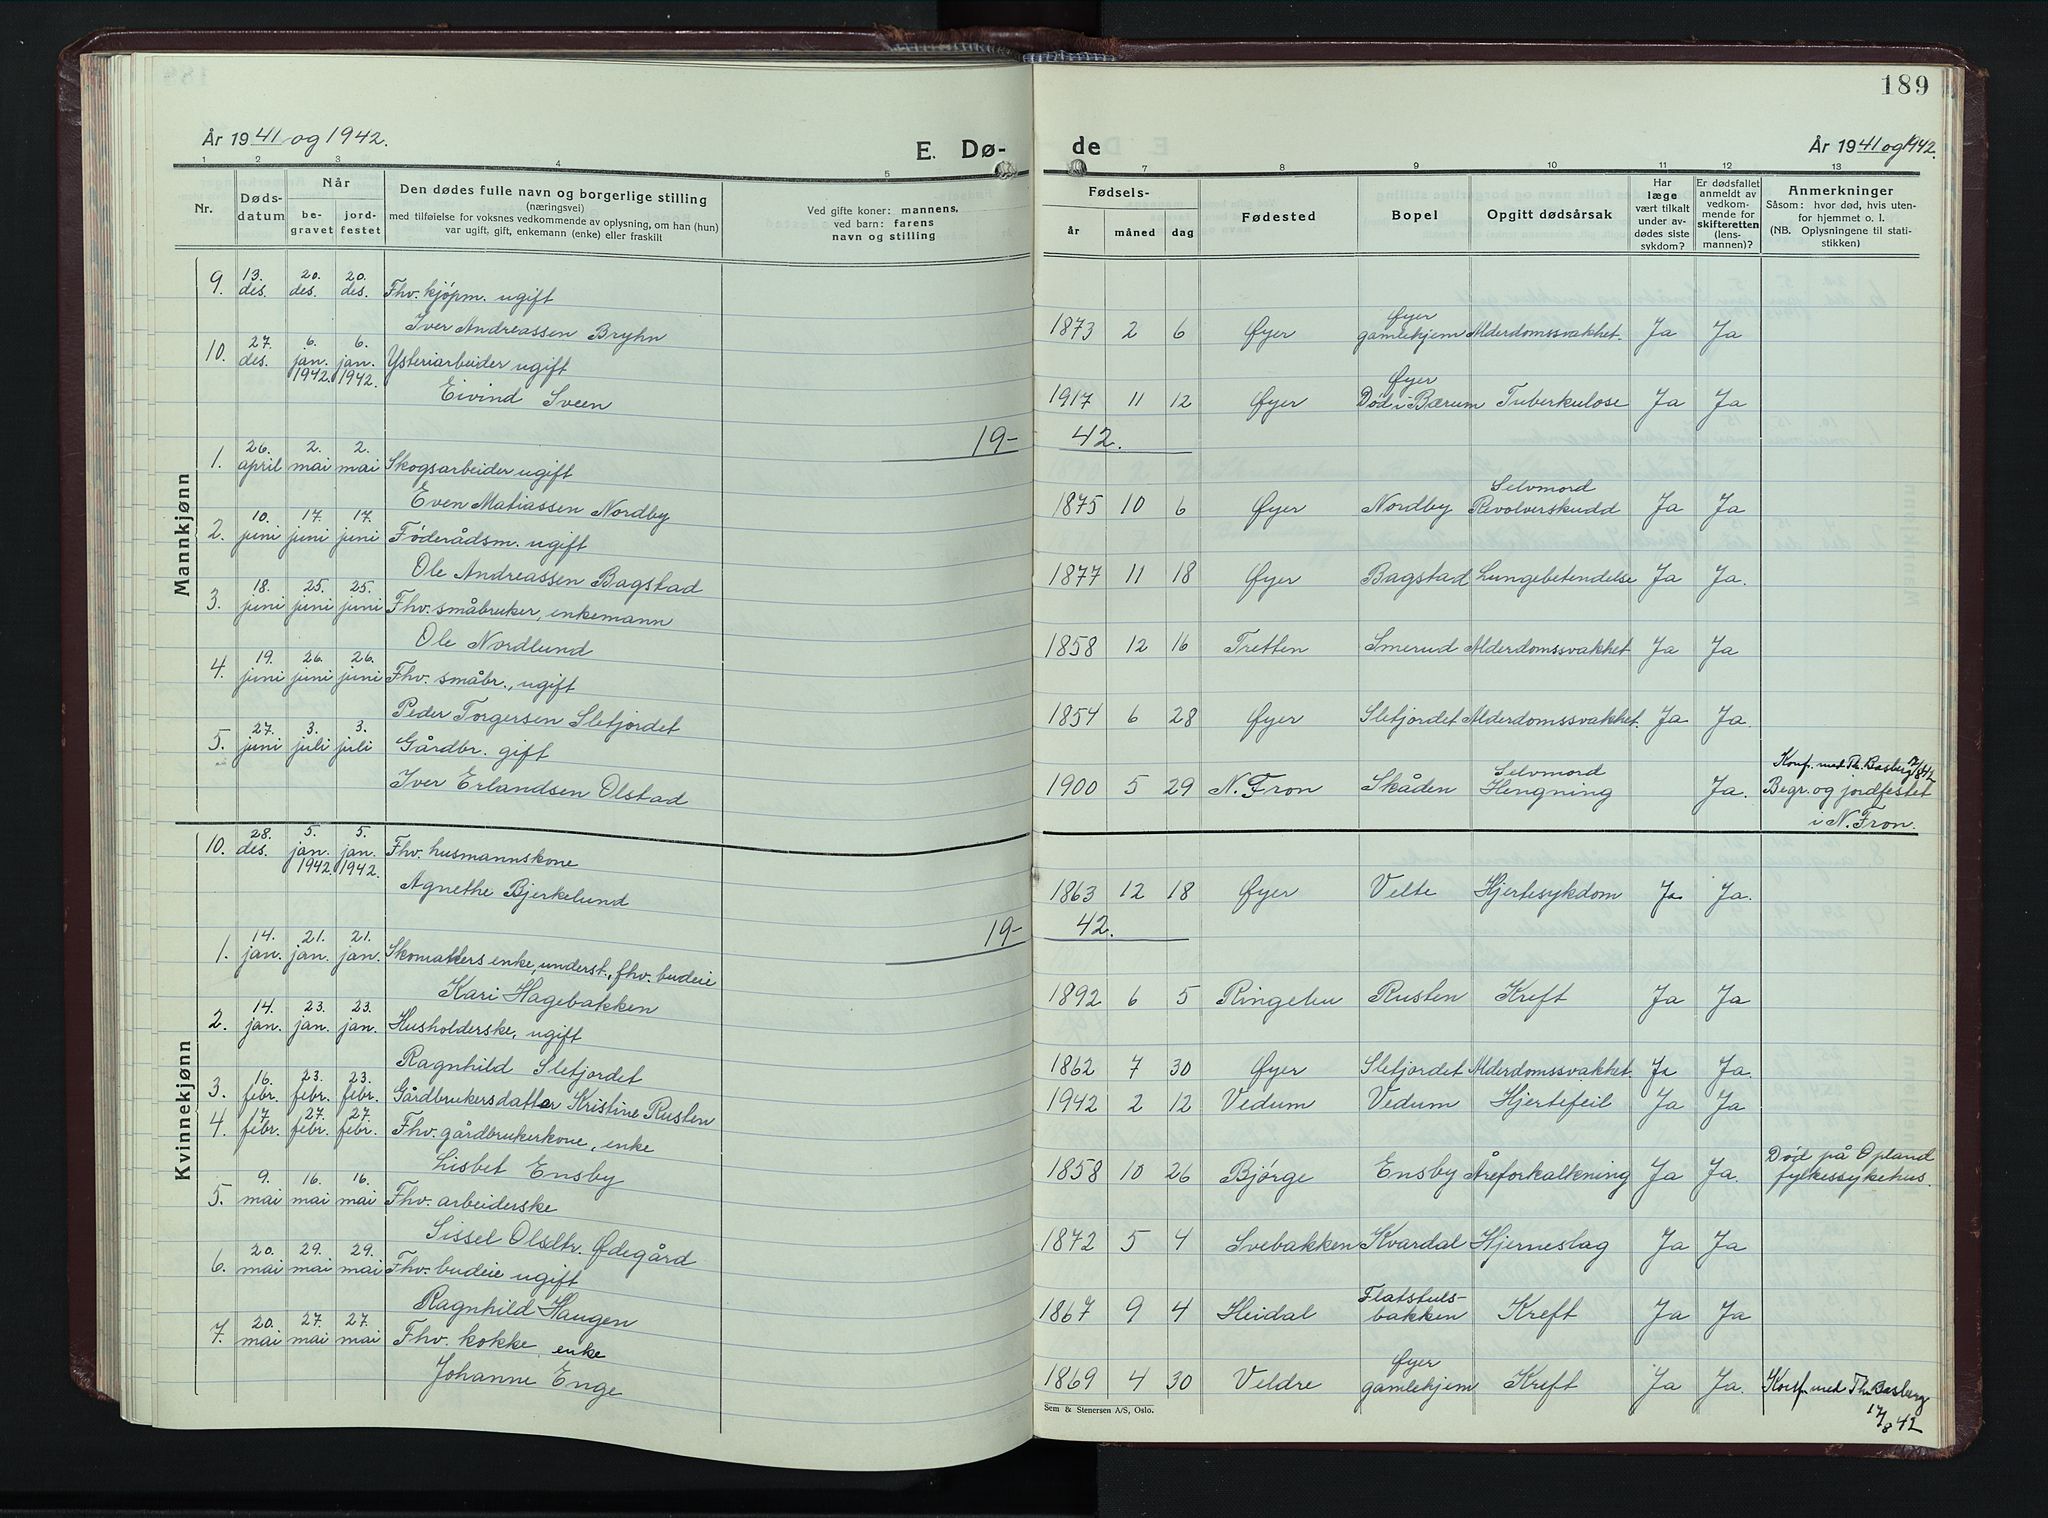 189
År 1941 og 1942.
E. Dø-
de
År 1941 og 1942.
1 2 3 4 5 7 8 9 10 11 12 13
Nr.
Døds-
datum
Når
be-
gravet
jord-
festet
Den dødes fulle navn og borgerlige stilling
(næringsvei)
med tilføielse for voksnes vedkommende av oplysning, om han (hun)
var ugift, gift, enkemann (enke) eller fraskilt
Ved gifte koner: mannens,
ved barn: farens
navn og stilling
Fødsels-
år måned dag
Fødested
Bopel
Opgitt dødsårsak
Har
læge
vært tilkalt
under av-
dødes siste
sykdom?
Er dødsfallet
anmeldt av
vedkom-
mende for
skifteretten
(lens-
mannen)?
Anmerkninger
Såsom: hvor død, hvis uten-
for hjemmet o. l.
(NB. Oplysningene til stati-
stikken)
Mannkjønn
9. 13. des. 20. des. 20. des. Fhv. kjøpm. ugift
Iver Andreassen Bryhn
1873 2 6 Øyer Øyer gamlehjem Alderdomssvakhet. Ja Ja
10. 27. des. 6. jan. 1942. 6. jan. 1942. Ysteriarbeider ugift
Eivind Sveen
1917 11 12 Øyer Øyer Død i Bærum Tuberkulose Ja Ja
19- 42.
1. 26. april 2. mai 2. mai Skogsarbeider ugift
Even Matiassen Nordby
1875 10 6 Øyer Nordby Selvmord Revolverskudd Ja Ja
2. 10. juni 17. juni 17. juni Føderådsm. ugift
Ole Andreassen Bagstad
1877 11 18 Øyer Bagstad Lungebetendelse Ja Ja.
3. 18. juni 25. juni 25. juni Fhv. småbruker, enkemann
Ole Nordlund
1858 12 16 Tretten Smerud Alderdomssvakhet Ja Ja
4. 19. juni 26. juni 26. juni Fhv. småbr., ugift
Peder Torgersen Slefjordet
1854 6 28 Øyer Slefjordet Alderdomssvakhet. Ja Ja.
5. 27. juni 3. juli 3. juli Gårdbr. gift
Iver Erlandsen Olstad
1900 5 29 N. Fron Skåden Selvmord Hengning Ja. Konf. med Th. Basberg 17/8 42
Begr. og jordfestet
i N. Fron.
Kvinnekjønn
10. 28. des. 5. jan. 1942. 5. jan. 1942. Fhv. husmannskone
Agnethe Bjerkelund
1863 12 18 Øyer Velte Hjertesykdom Ja Ja.
19- 42.
1. 14. jan. 21. jan. 21. jan. Skomakers enke, underst., fhv. budeie
Kari Hagebakken
1892 6 5 Ringebu Rusten Kreft Ja Ja
2. 14. jan. 23. jan. 23. jan. Husholderske, ugift
Ragnhild Slefjordet
1862 7 30 Øyer Slefjordet Alderdomssvakhet. Ja Ja.
3. 16. febr. 23. febr. 23. febr. Gårdbrukersdatter Kristine Rusten
1942 2 12 Vedum Vedum Hjertefeil Ja Ja
4. 17. febr. 27. febr. 27. febr. Fhv. gårdbrukerkone, enke
Lisbet Ensby
1858 10 26 Bjørge Ensby Åreforkalkning Ja Ja. Død på Opland
fylkessykehus.
5. 9. mai 16. mai 16. mai Fhv. arbeiderske
Sissel Olsdtr. Ødegård
1872 5 4 Svebakken Kvardal Hjerneslag Ja Ja
6. 20. mai 29. mai 29. mai Fhv. budeie ugift
Ragnhild Haugen
1867 9 4 Heidal Flatstuls- bakken Kreft Ja Ja
7. 20. mai 27. mai 27. mai Fhv. kokke, enke
Johanne Enge
1869 4 30 Veldre Øyer gamlehjem Kreft Ja Ja. Konf. med Th. Basberg
17/8 42
Sem & Stenersen A/S, Oslo.